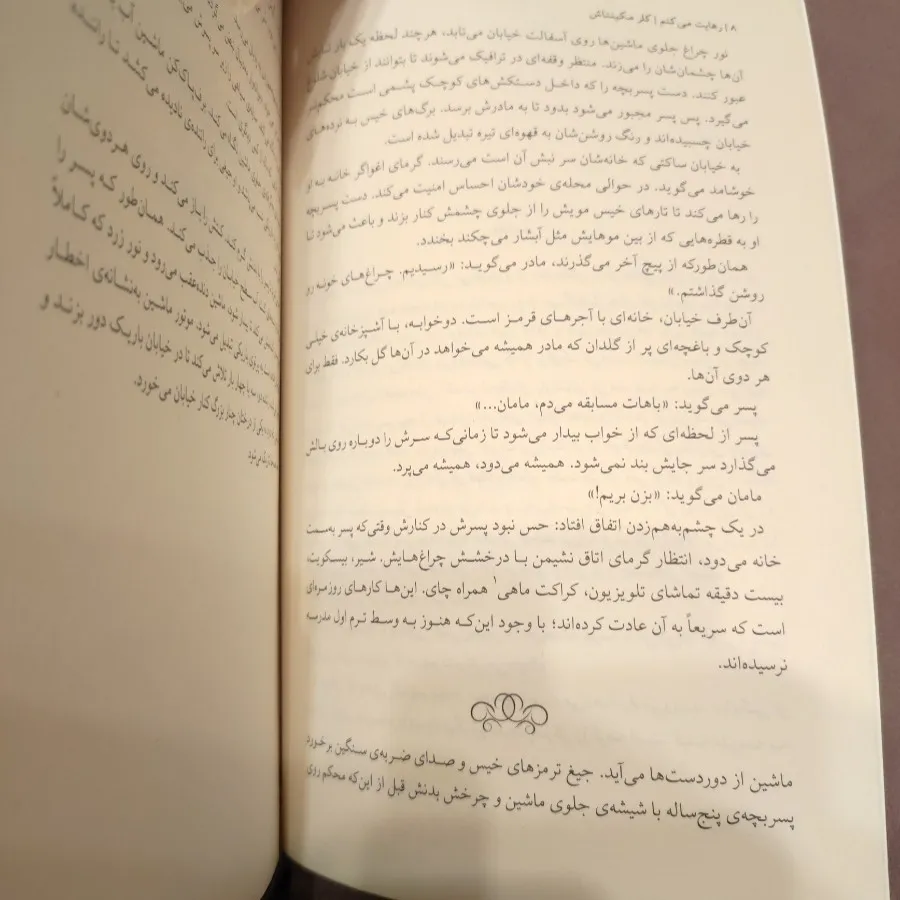 ۸ | رهایت می‌کنم | کلر مکینتاش
نور چراغ جلوی ماشین‌ها روی آسفالت خیابان می‌تابد، هرچند لحظه یک بار
آن‌ها چشمان‌شان را می‌زند. منتظر وقفه‌ای در ترافیک می‌شوند تا بتوانند از خیابان
عبور کنند. دست پسربچه را که داخل دستکش‌های کوچک پشمی است محکم‌تر
می‌گیرد. پس پسر مجبور می‌شود بدود تا به مادرش برسد. برگ‌های خیس به نرده‌های
خیابان چسبیده‌اند و رنگ روشن‌شان به قهوه‌ای تیره تبدیل شده است.
به خیابان ساکتی که خانه‌شان سر نبش آن است می‌رسند. گرمای اغواگر خانه به او
خوشامد می‌گوید. در حوالی محله‌ی خودشان احساس امنیت می‌کند. دست پسربچه
را رها می‌کند تا تارهای خیس مویش را از جلوی چشمش کنار بزند و باعث می‌شود تا
او به قطره‌هایی که از بین موهایش مثل آبشار می‌چکند بخندد.
همان‌طورکه از پیچ آخر می‌گذرند، مادر می‌گوید: «رسیدیم. چراغ‌های خونه رو
روشن گذاشتم.»
آن‌طرف خیابان، خانه‌ای با آجرهای قرمز است. دوخوابه، با آشپزخانه‌ی خیلی
کوچک و باغچه‌ای پر از گلدان که مادر همیشه می‌خواهد در آن‌ها گل بکارد. فقط برای
هر دوی آن‌ها.
پسر می‌گوید: «باهات مسابقه می‌دم، مامان...»
پسر از لحظه‌ای که از خواب بیدار می‌شود تا زمانی‌که سرش را دوباره روی بالش
می‌گذارد سر جایش بند نمی‌شود. همیشه می‌دود، همیشه می‌پرد.
مامان می‌گوید: «بزن بریم!»
در یک چشم‌به‌هم‌زدن اتفاق افتاد: حس نبود پسرش در کنارش وقتی‌که پسر به‌سمت
خانه می‌دود، انتظار گرمای اتاق نشیمن با درخشش چراغ‌هایش. شیر، بیسکویت،
بیست دقیقه تماشای تلویزیون، کراکت ماهی۱ همراه چای. این‌ها کارهای روزمره‌ای
است که سریعاً به آن عادت کرده‌اند؛ با وجود این‌که هنوز به وسط ترم اول مدرسه
نرسیده‌اند.
ماشین از دوردست‌ها می‌آید. جیغ ترمزهای خیس و صدای ضربه‌ی سنگین برخورد
پسربچه‌ی پنج‌ساله با شیشه‌ی جلوی ماشین و چرخش بدنش قبل از این‌که محکم روی
نادیده می‌کشد تا راننده
کتش را باز می‌کند و روی هر دوی‌شان
را جذب می‌کند. همان‌طور که پسر را
ماشین دنده‌عقب می‌رود و نور زرد که کاملاً
تبدیل می‌شود. موتور ماشین به‌نشانه‌ی اخطار
چهار بار تلاش می‌کند تا در خیابان باریک دور بزند و
یکی از درختان چنار بزرگ کنار خیابان می‌خورد.